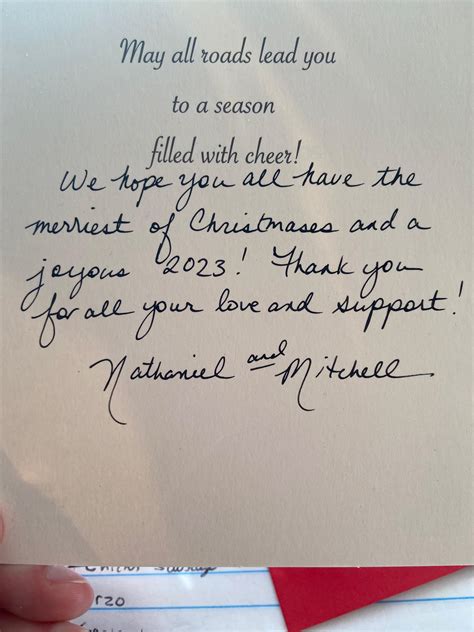 May all roads lead you
to a season
filled with cheer!
We hope you all have the
merriest of Christmases and a
joyous 2023! Thank you
for all your love and support!
Nathaniel and Mitchell